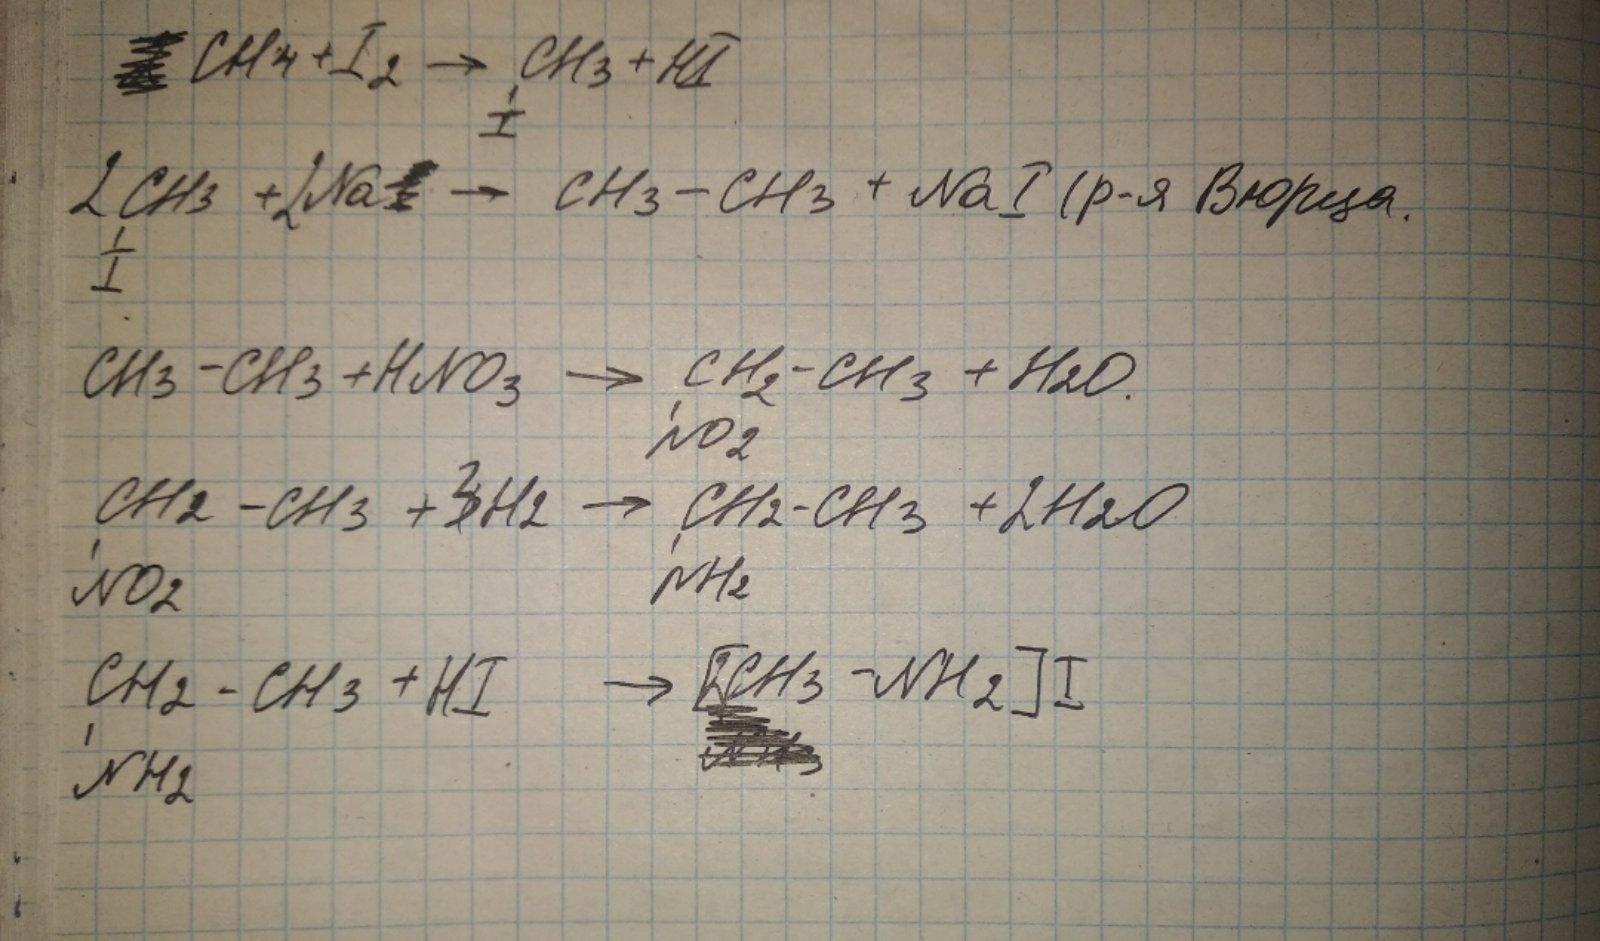 CH4 + I2 → CH3 + HI
I
2 CH3 + 2Na → CH3 - CH3 + NaI (р-я Вюрца.
I
CH3 - CH3 + HNO3 → CH2 - CH3 + H2O.
NO2
CH2 - CH3 + 3H2 → CH2 - CH3 + 2H2O
NO2 NH2
CH2 - CH3 + HI → [2CH3 - NH2]I
NH2